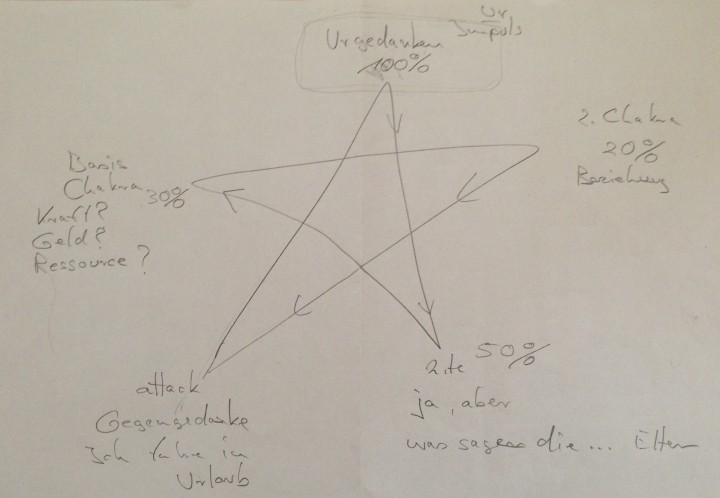 Ur
Impuls
Urgedanken
100%
2. Chakra
20%
Beziehung
Basis
Chakra 30%
Kraft?
Geld?
Ressource?
attack
Gegengedanke
Ich fahre in
Urlaub
2.te 50%
ja, aber
was sagen die ... Eltern